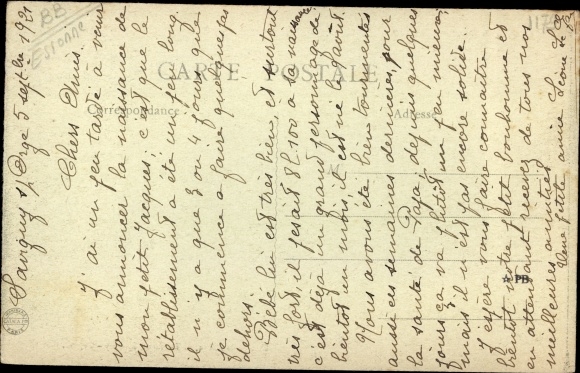 BB
Essonne
1179
CARTE POSTALE
Correspondance
Adresse
Savigny s/ Orge 5 septbre 1921
Chers Amis
J'ai un peu tardé à venir
vous annoncer la naissance de
mon petit Jacques; c'est que le
rétablissement a été un peu long
il n'y a que 3 ou 4 jours que
je commence à faire quelques pas
dehors.
Bébé lui est très bien, et surtout
très fort, il pesait 8l.100 à la naissance
c'est déjà un grand personnage de
bientôt un mois, il est né le 9 août.
Nous avons été bien tourmentés
aussi ces semaines dernières, pour
la santé de Papa; depuis quelques
jours ça va plutôt un peu mieux,
mais il n'est pas encore solide.
J'espère vous faire connaître
bientôt notre petit bonhomme et
en attendant recevez de tous nos
meilleures amitiés
Votre petite amie Léone
PD